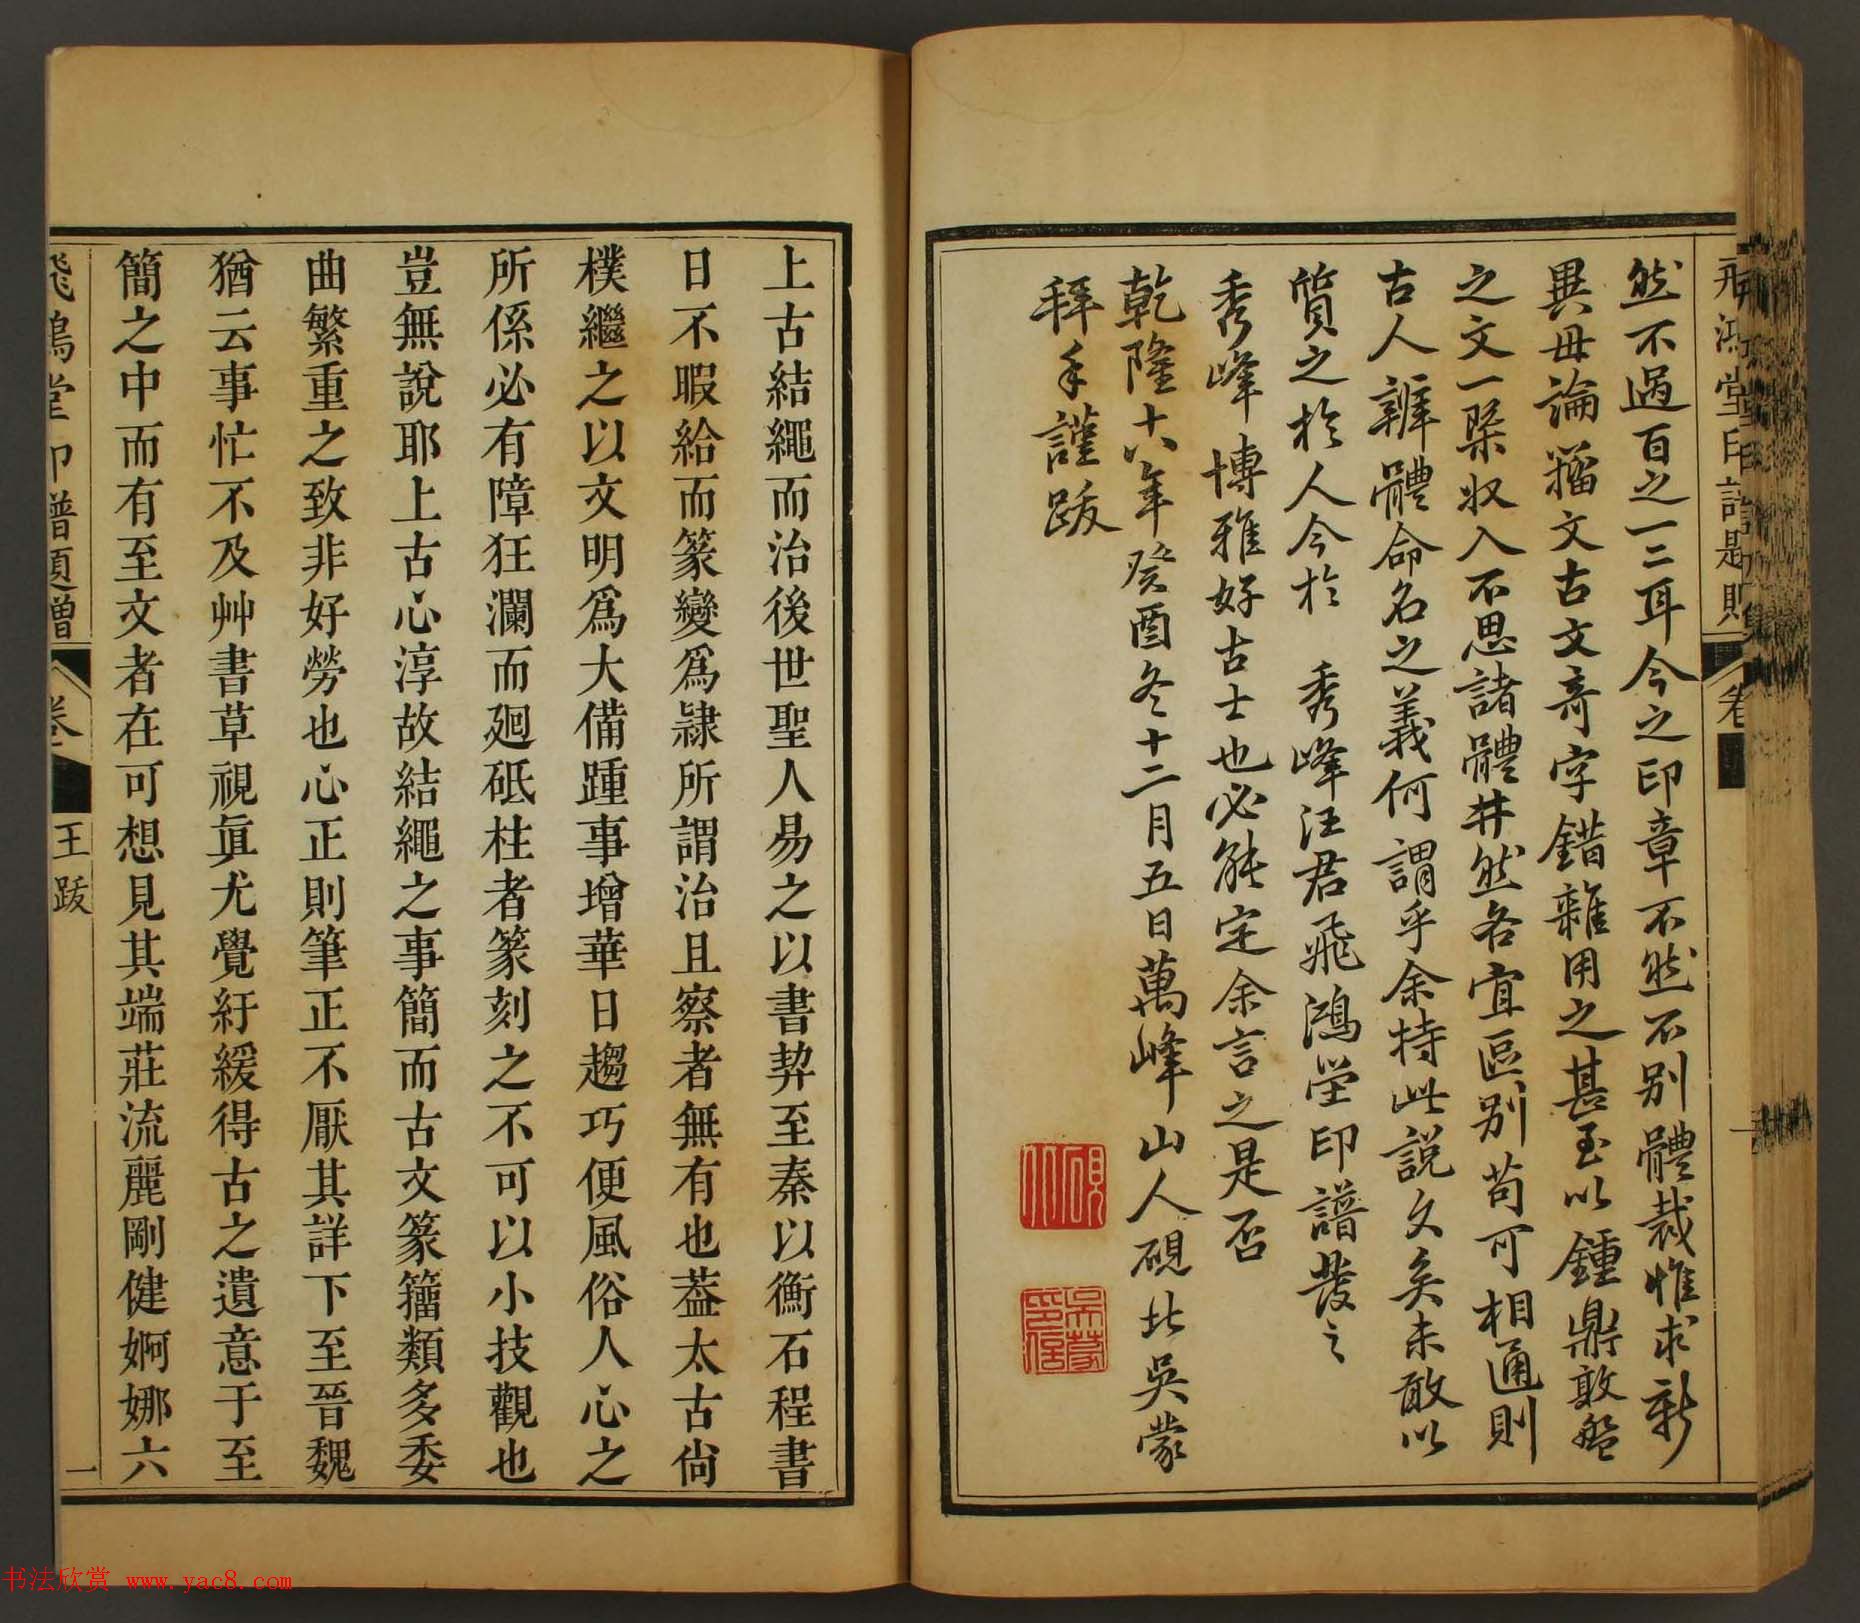 然不過百之一二耳今之印章不然不别體裁惟求新
異毋論籀文古文奇字錯雜用之甚至以鍾鼎敦盤
之文一槩收入不思諸體井然各宜區别苟可相通則
古人辨體命名之義何謂乎余持此説久矣未敢以
質之於人今於 秀峰汪君飛鴻堂印譜發之
秀峰博雅好古士也必能定余言之是否
乾隆十八年癸酉冬十二月五日萬峰山人硯北吳蒙
拜手謹跋
硯北
吳蒙印信
飛鴻堂印譜題贈
卷
上古結繩而治後世聖人易之以書契至秦以衡石程書
日不暇給而篆變爲隷所謂治且察者無有也葢太古尙
樸繼之以文明爲大備踵事增華日趨巧便風俗人心之
所係必有障狂瀾而廻砥柱者篆刻之不可以小技觀也
豈無說耶上古心淳故結繩之事簡而古文篆籀類多委
曲繁重之致非好勞也心正則筆正不厭其詳下至晉魏
猶云事忙不及艸書草視眞尤覺紆緩得古之遺意于至
簡之中而有至文者在可想見其端莊流麗剛健婀娜六
飛鴻堂印譜題贈
卷
王跋
一
书法欣赏 www.yac8.com